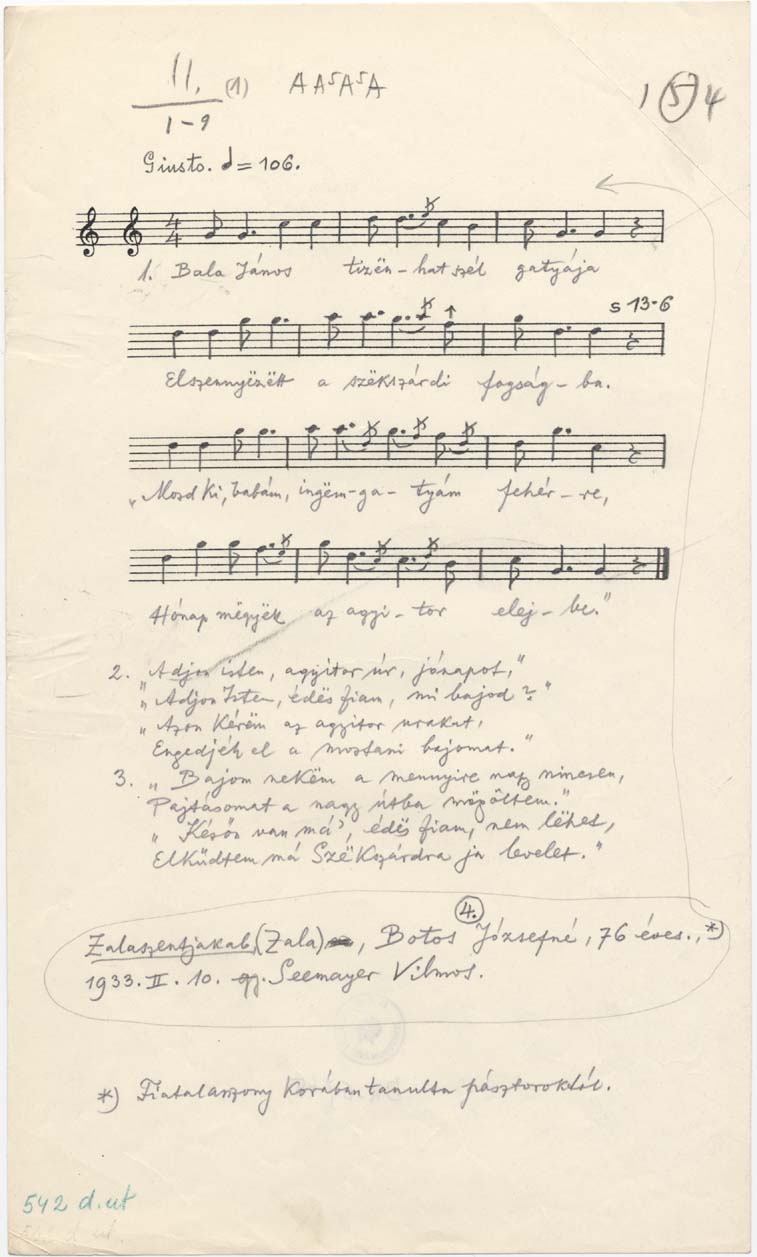 II. (1) AA⁵A⁵A 1 5 4
1-9
Giusto. = 106.
1. Bala János tizën-hat szél gatyája
s 13-6
Elszennyëzëtt a szëkszárdi fogság-ba.
„Mosd ki, babám, ingëm-ga-tyám fehér-re,
Hónap mëgyëk az agyi-tor elej-be."
2. „Adjon isten, agyitor úr, jónapot,"
„Adjon Isten, édës fiam, mi bajod?"
„Azon kérëm az agyitor urakat,
Engedjék el a mostani bajomat."
3. „Bajom nekëm a mennyire nagy nincsen,
Pajtásomat a nagy útba mëgöltem."
„Késön van má', édës fiam, nem lëhet,
Elküdtem má Szëkszárdra ja levelet."
4.
Zalaszentjakab, (Zala), Botos Józsefné, 76 éves., *)
1933. II. 10. gy. Seemayer Vilmos.
*) Fiatalasszony korában tanulta pásztoroktól.
542 d. ut